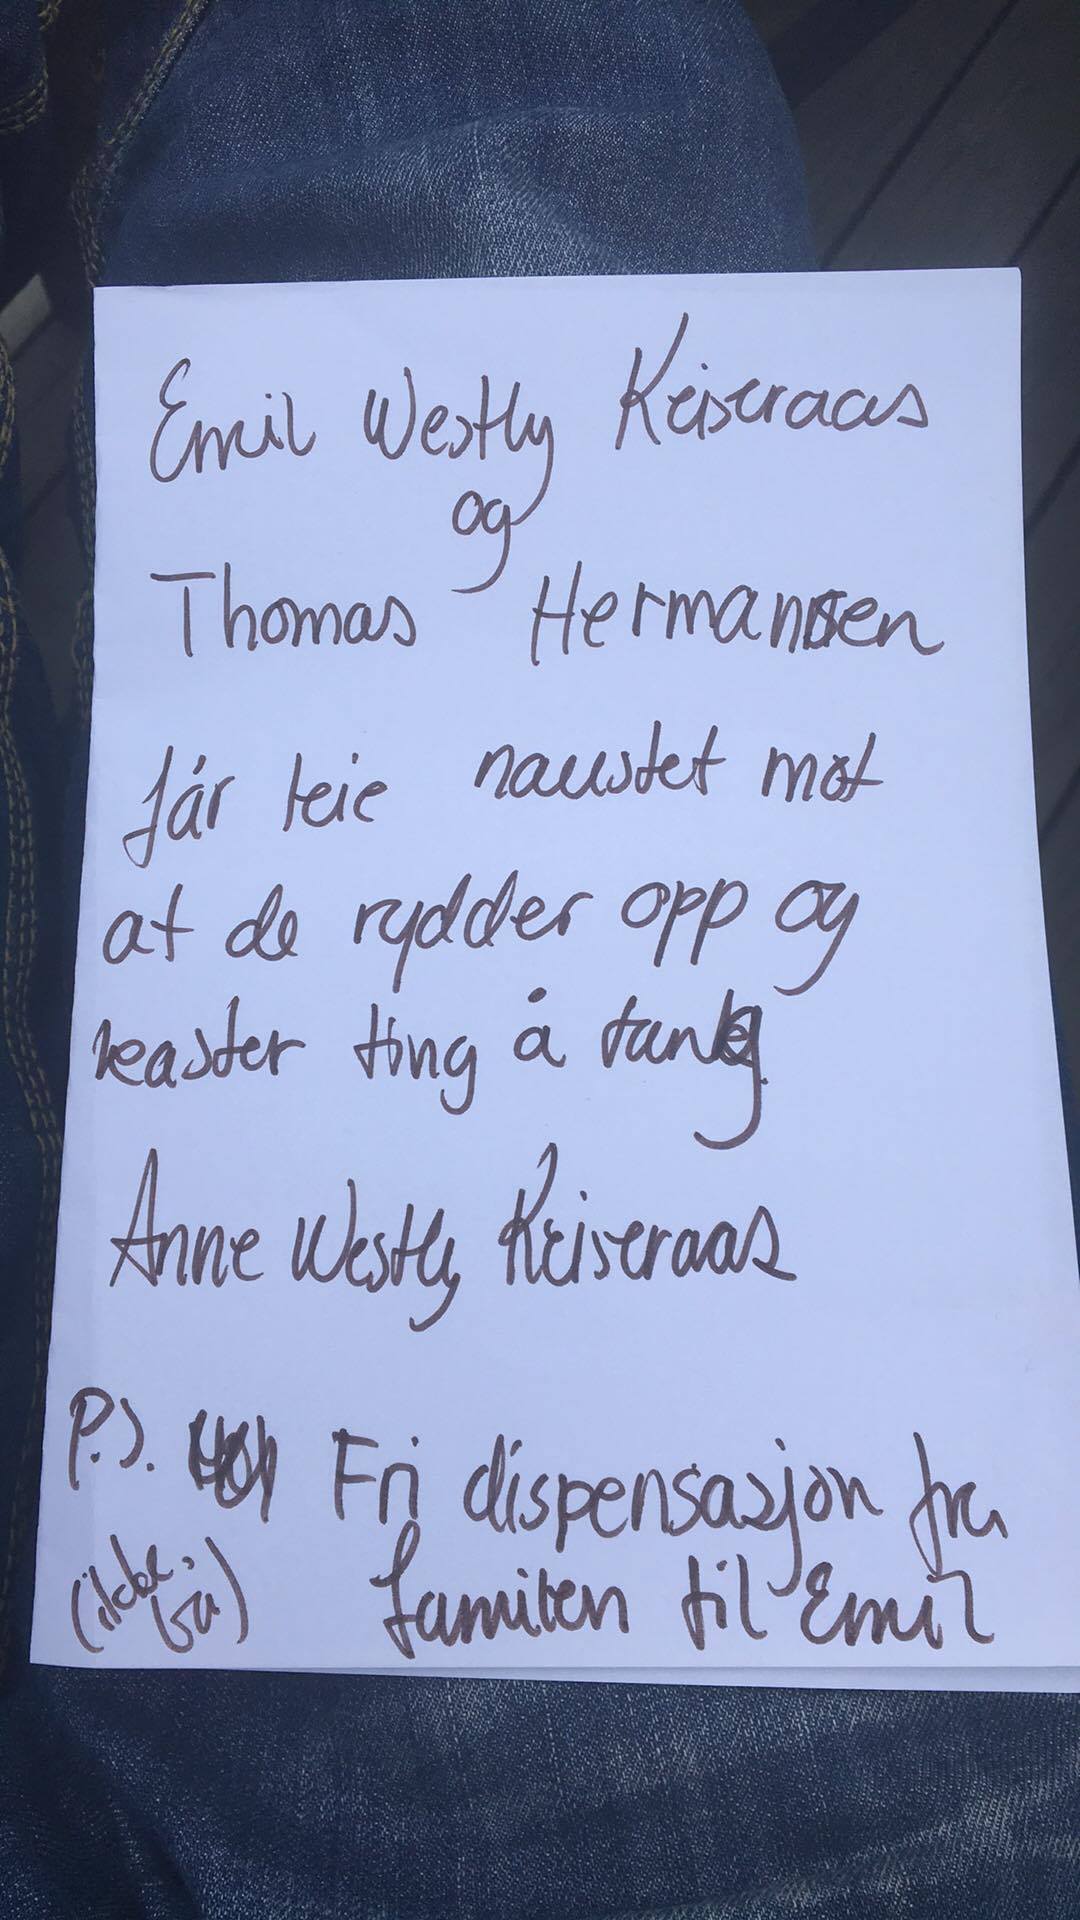 Emil Westly Keiseraas
og
Thomas Hermansen
får leie naustet mot
at de rydder opp og
kaster ting å tang
Anne Westly Keiseraas
P.S. Fri dispensasjon fra
familien til Emil